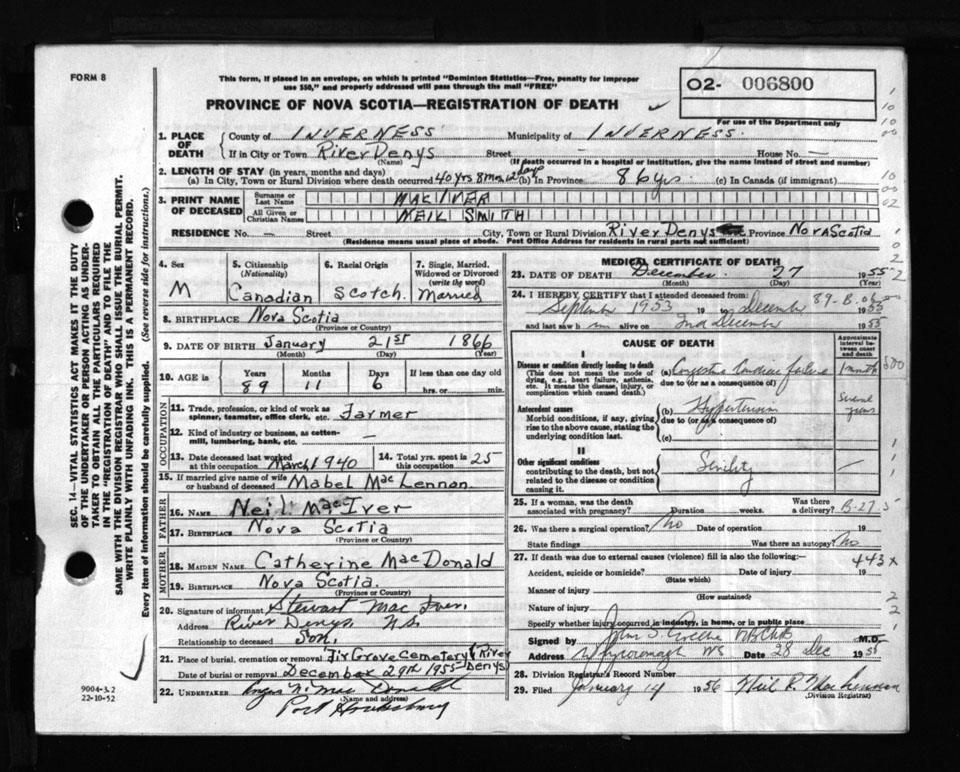 FORM 8
This form, if placed in an envelope, on which is printed "Dominion Statistics—Free, penalty for improper
use $50," and properly addressed will pass through the mail "FREE"
PROVINCE OF NOVA SCOTIA—REGISTRATION OF DEATH
O2- 006800
For use of the Department only
1. PLACE OF DEATH County of INVERNESS Municipality of INVERNESS.
If in City or Town River Denys Street House No. —
(Name) (If death occurred in a hospital or institution, give the name instead of street and number)
2. LENGTH OF STAY (in years, months and days)
(a) In City, Town or Rural Division where death occurred 40 yrs 8 Mos 12 days (b) In Province 86 yrs. (c) In Canada (if immigrant)
3. PRINT NAME OF DECEASED Surname or Last Name MAC IVER
All Given or Christian Names NEIL SMITH
RESIDENCE No. — Street City, Town or Rural Division River Denys Province Nova Scotia
(Residence means usual place of abode. Post Office Address for residents in rural parts not sufficient)
4. Sex M
5. Citizenship (Nationality) Canadian
6. Racial Origin Scotch.
7. Single, Married, Widowed or Divorced (write the word) Married
8. BIRTHPLACE Nova Scotia
(Province or Country)
9. DATE OF BIRTH January 21st 1866
(Month) (Day) (Year)
10. AGE in Years 89 Months 11 Days 6 If less than one day old hrs. or min.
OCCUPATION
11. Trade, profession or kind of work as spinner, teamster, office clerk, etc. Farmer
12. Kind of industry or business, as cotton-mill, lumbering, bank, etc. —
13. Date deceased last worked at this occupation March 1940
14. Total yrs. spent in this occupation 25
15. If married give name of wife or husband of deceased Mabel Mac Lennon.
FATHER
16. NAME Neil Mac Iver
17. BIRTHPLACE Nova Scotia
(Province or Country)
MOTHER
18. MAIDEN NAME Catherine Mac Donald
19. BIRTHPLACE Nova Scotia.
(Province or Country)
20. Signature of informant Stewart Mac Iver.
Address River Denys, N.S.
Relationship to deceased Son.
21. Place of burial, cremation or removal Fir Grove Cemetery (River Denys)
Date of burial or removal December 29th 1955
22. UNDERTAKER Angus N. Mac Donald
(Name and address)
Port Hawkesbury
MEDICAL CERTIFICATE OF DEATH
23. DATE OF DEATH December 27 1955
(Month) (Day) (Year)
24. I HEREBY CERTIFY that I attended deceased from
September 1953 19 to December 1955
89-B.
and last saw him alive on 2nd December 1955
CAUSE OF DEATH
Approximate interval between onset and death
I
Disease or condition directly leading to death
(This does not mean the mode of dying, e.g., heart failure, asthenia, etc. It means the disease, injury, or complication which caused death.)
(a) Congestive Cardiac failure 1 month
due to (or as a consequence of)
Antecedent causes
Morbid conditions, if any, giving rise to the above cause, stating the underlying condition last.
(b) Hypertension Several years
due to (or as a consequence of)
(c)
II
Other significant conditions
contributing to the death, but not related to the disease or condition causing it.
Senility —
25. If a woman, was the death associated with pregnancy? Duration Was there a delivery?
B-27
26. Was there a surgical operation? No Date of operation 19
State findings Was there an autopsy? No
27. If death was due to external causes (violence) fill in also the following:—
443x
Accident, suicide or homicide? Date of injury 19
(State which)
Manner of injury
(How sustained)
Nature of injury
Specify whether injury occurred in industry, in home, or in public place
Signed by John S. MBChB M.D.
Address Whycocomagh NS Date 28 Dec 1955
28. Division Registrar's Record Number
29. Filed January 14 1956 Neil R. MacLennan
(Division Registrar)
SEC. 14—VITAL STATISTICS ACT MAKES IT THE DUTY
OF THE UNDERTAKER OR PERSON ACTING AS UNDER-
TAKER TO OBTAIN ALL THE PARTICULARS REQUIRED
IN THE "REGISTRATION OF DEATH" AND TO FILE THE
SAME WITH THE DIVISION REGISTRAR WHO SHALL ISSUE THE BURIAL PERMIT.
WRITE PLAINLY WITH UNFADING INK. THIS IS A PERMANENT RECORD.
Every item of information should be carefully supplied. (See reverse side for instructions.)
9004-3.2
22-10-52